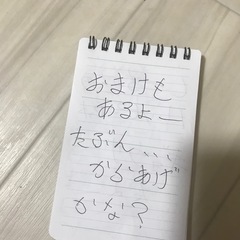 おまけも
あるよー
たぶん、、、
からあげ
かな?